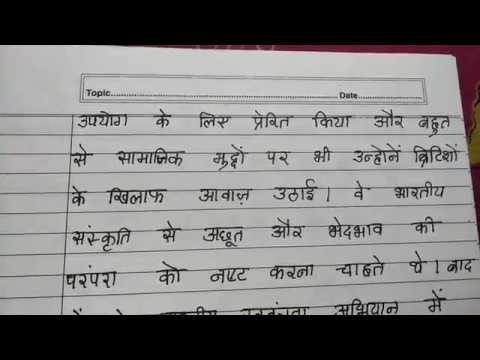 Topic........................................Date....................
उपयोग के लिए प्रेरित किया और बहुत
से सामाजिक मुद्दों पर भी उन्होनें ब्रिटिशों
के खिलाफ आवाज़ उठाई। वे भारतीय
संस्कृति से अछूत और भेदभाव की
परंपरा को नष्ट करना चाहते थे। बाद
अभियान में